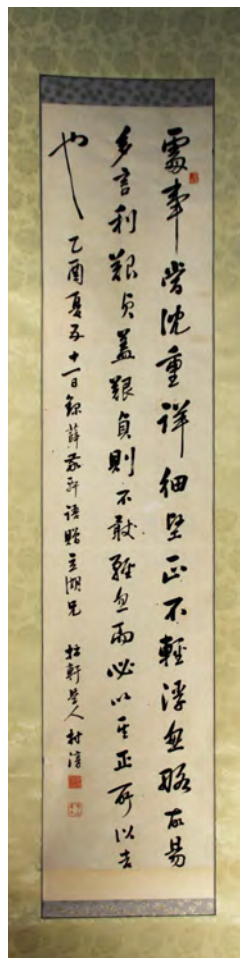 處事當沈重詳細堅正不輕浮忽略故易
多言利艱貞蓋艱貞則不敢輕忽而必以其正所以吉
也
乙酉夏五十一日錄薛敬軒語贈湖兄 軒人村淳